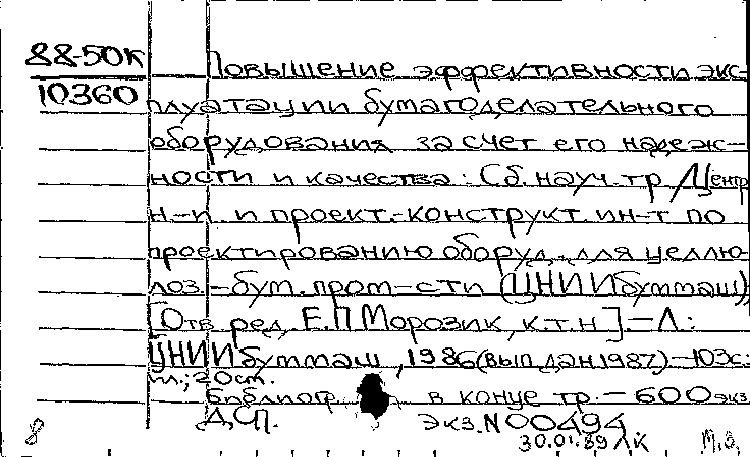 88-50К
10360
Повышение эффективности экс-
плуатации бумагоделательного
оборудования за счет его надеж-
ности и качества: Сб. науч. тр. / Центр.
н.-и. и проект.-конструкт. ин-т по
проектированию оборуд. для целлю-
лоз.-бум. пром-сти (ЦНИИбуммаш),
[Отв. ред. Е.П. Морозик, к.т.н.]. - Л.:
ЦНИИбуммаш, 1986 (вып. дан. 1987) - 103с.:
ил.; 20см.
Библиогр. в конце тр. - 600 экз.
ДСП. Экз. N 00494
30.01.89 ЛК М.З.
8